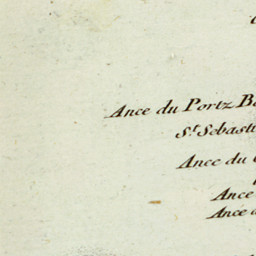 Ance du Portz
St. Sebasti
Ance du
Ance
Ance